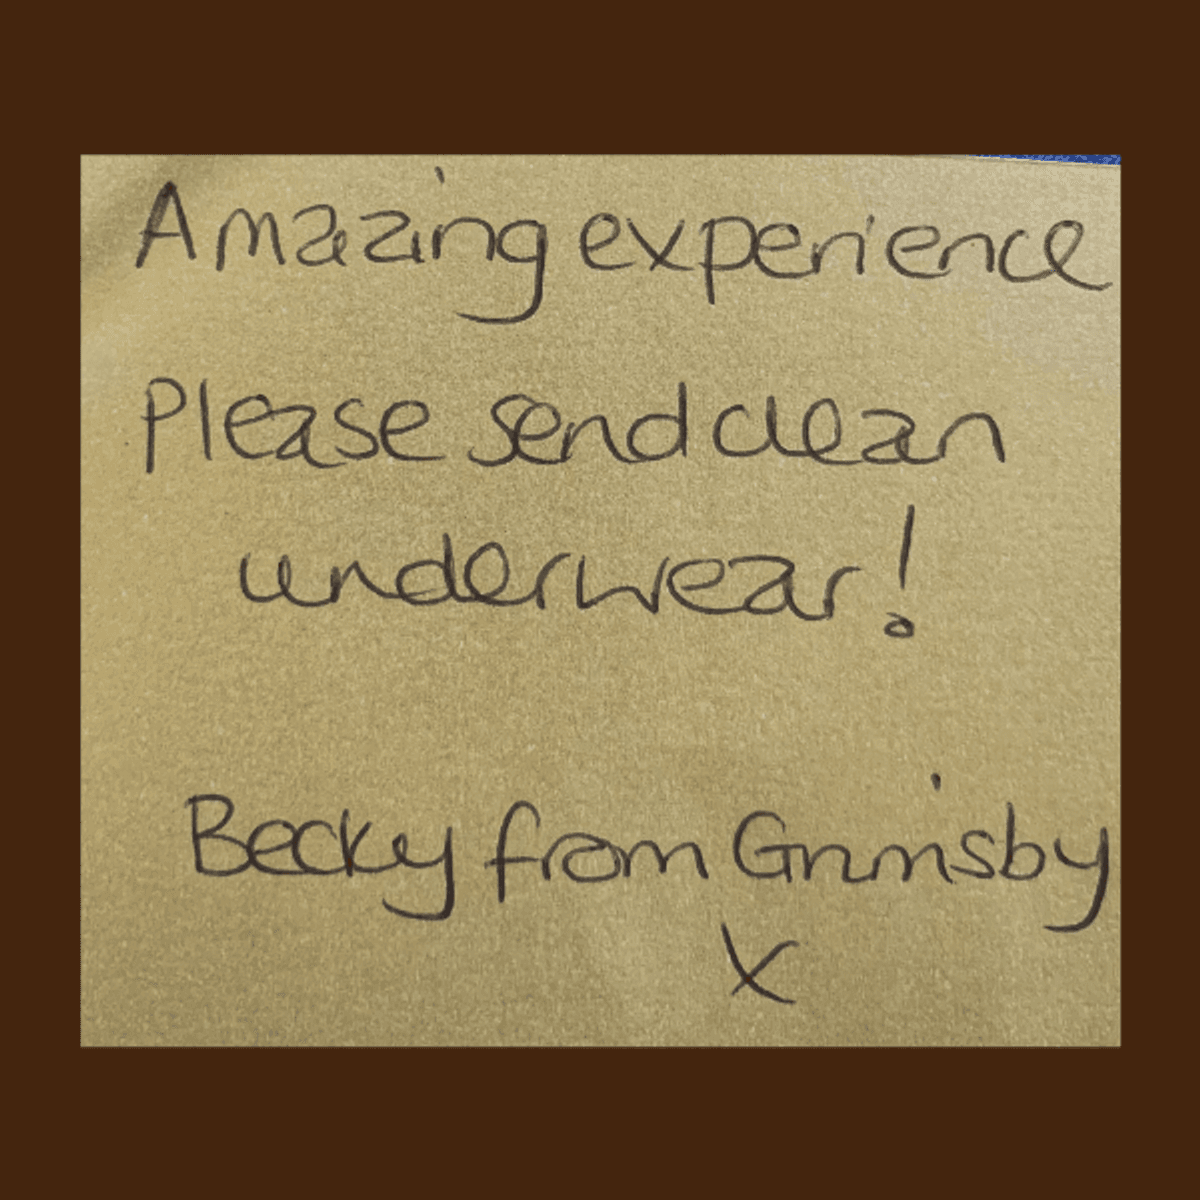 Amazing experience
Please send clean
underwear!
Becky from Grimsby
X